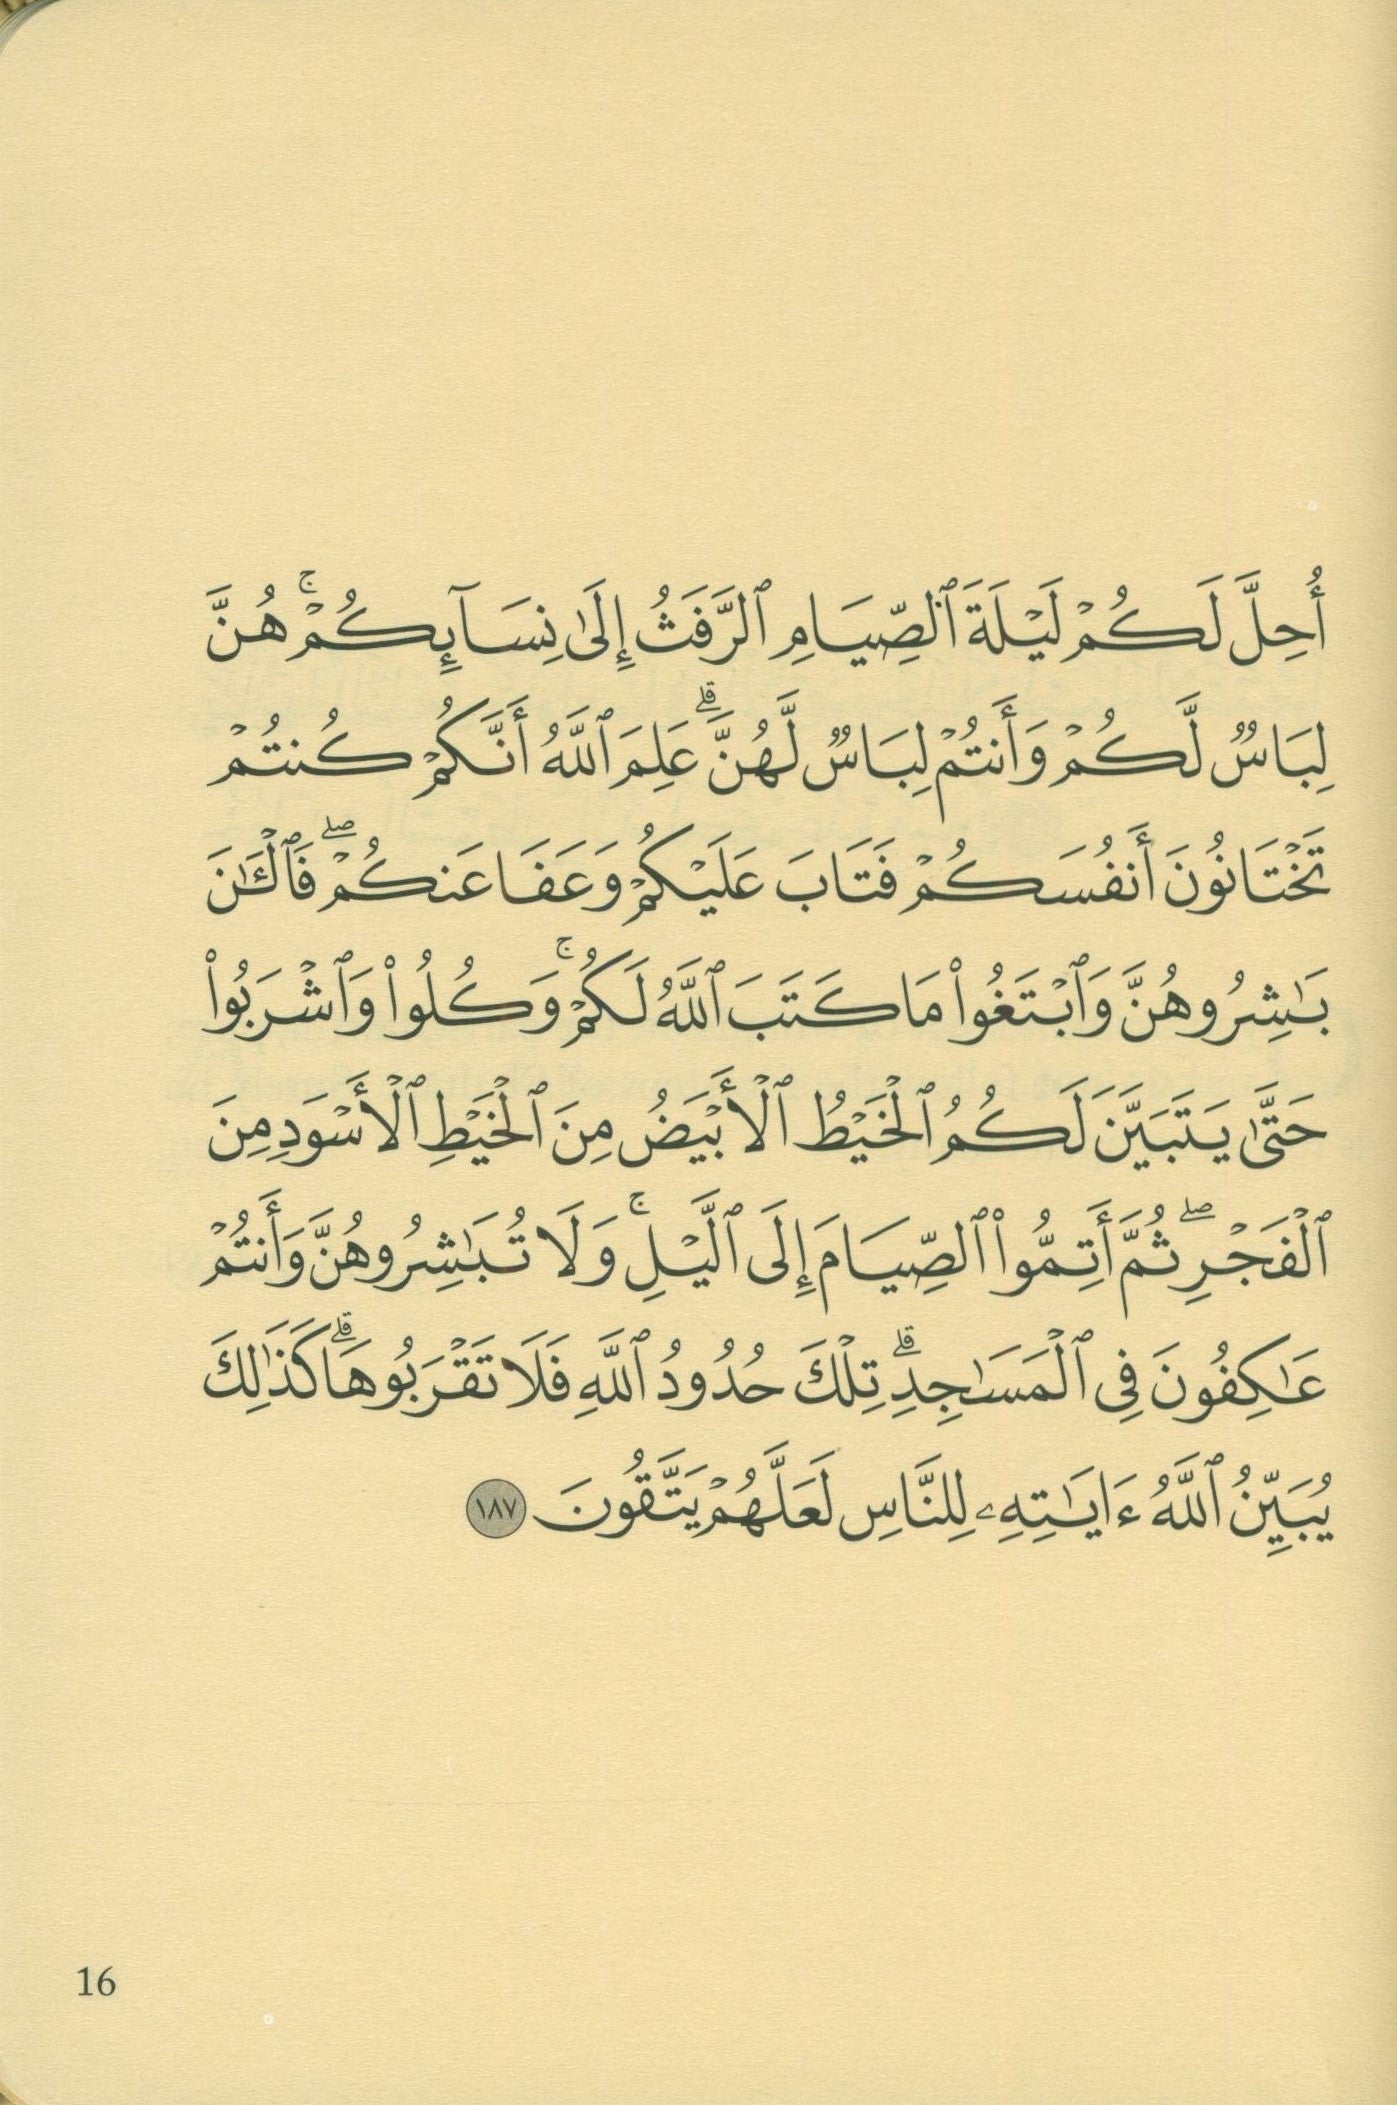 أُحِلَّ لَكُمۡ لَيۡلَةَ ٱلصِّيَامِ ٱلرَّفَثُ إِلَىٰ نِسَآئِكُمۡۚ هُنَّ
لِبَاسٞ لَّكُمۡ وَأَنتُمۡ لِبَاسٞ لَّهُنَّۗ عَلِمَ ٱللَّهُ أَنَّكُمۡ كُنتُمۡ
تَخۡتَانُونَ أَنفُسَكُمۡ فَتَابَ عَلَيۡكُمۡ وَعَفَا عَنكُمۡۖ فَٱلۡـَٰٔنَ
بَٰشِرُوهُنَّ وَٱبۡتَغُواْ مَا كَتَبَ ٱللَّهُ لَكُمۡۚ وَكُلُواْ وَٱشۡرَبُواْ
حَتَّىٰ يَتَبَيَّنَ لَكُمُ ٱلۡخَيۡطُ ٱلۡأَبۡيَضُ مِنَ ٱلۡخَيۡطِ ٱلۡأَسۡوَدِ مِنَ
ٱلۡفَجۡرِۖ ثُمَّ أَتِمُّواْ ٱلصِّيَامَ إِلَى ٱلَّيۡلِۚ وَلَا تُبَٰشِرُوهُنَّ وَأَنتُمۡ
عَٰكِفُونَ فِي ٱلۡمَسَٰجِدِۗ تِلۡكَ حُدُودُ ٱللَّهِ فَلَا تَقۡرَبُوهَاۗ كَذَٰلِكَ
يُبَيِّنُ ٱللَّهُ ءَايَٰتِهِۦ لِلنَّاسِ لَعَلَّهُمۡ يَتَّقُونَ ١٨٧
16